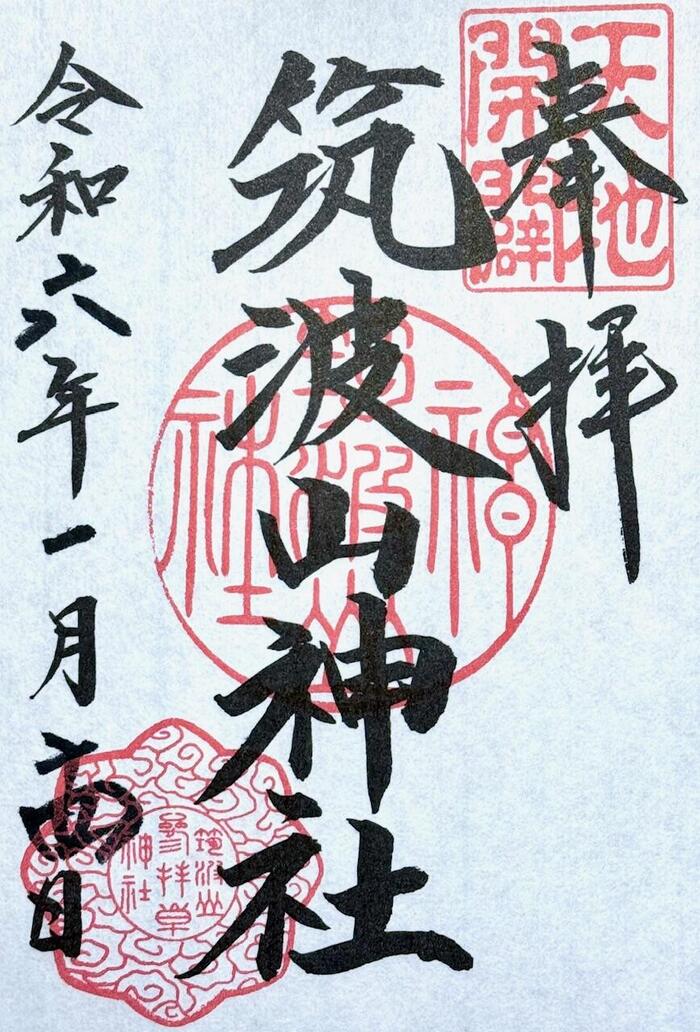 奉拝
天地
開闢
筑波山神社
筑波山
神
社
令和六年一月 日
筑波山
參拝章
神社